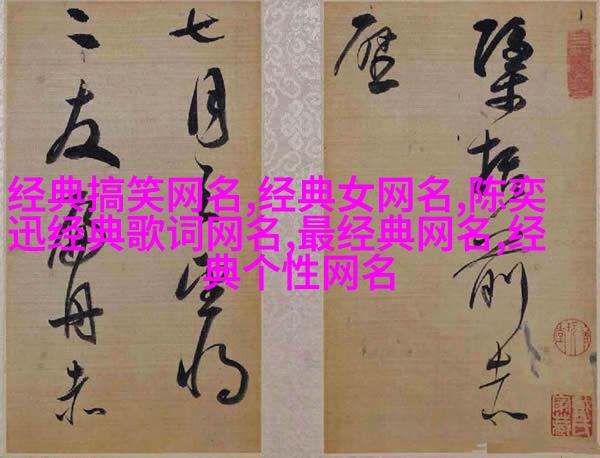 括前赤
壁
七月之望
二友舟赤
经典搞笑网名,经典女网名,陈奕
迅经典歌词网名,最经典网名,经
典个性网名